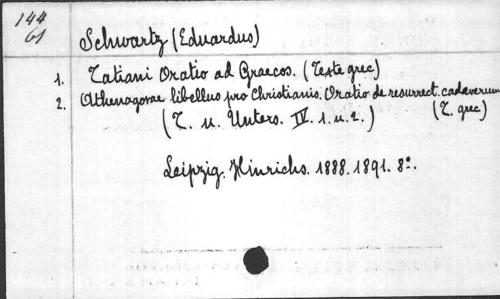 144
61
Schwartz (Eduardus)
1. Tatiani Oratio ad Graecos. (Texte grec)
2. Athenagorae libellus pro Christianis. Oratio de resurrect. cadaverum
(T. u. Unters. IV. 1. u. 2.) (T. grec)
Leipzig. Hinrichs. 1888. 1891. 8°.